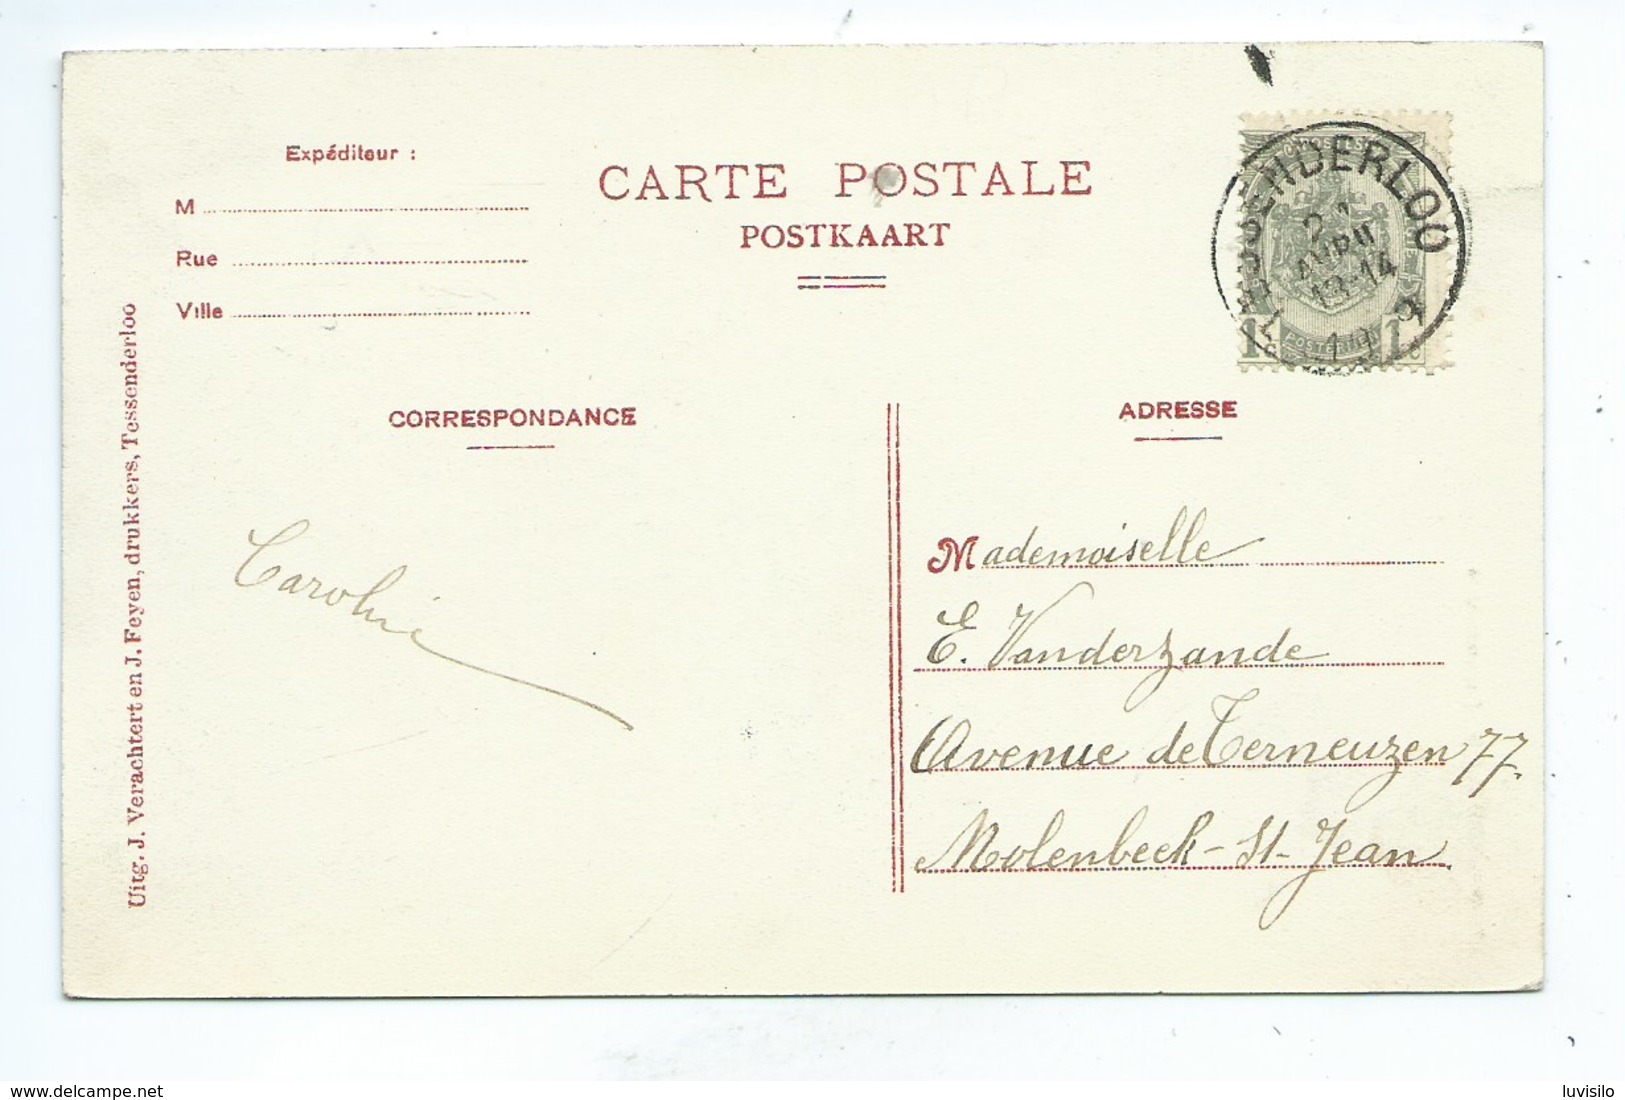 Expéditeur :
M
Rue
Ville
CARTE POSTALE
POSTKAART
TESSENDERLOO
AVRIL
13-14
POSTERIJEN
1c 1c
CORRESPONDANCE
ADRESSE
Uitg. J. Verachtert en J. Feyen, drukkers, Tessenderloo
Caroline
Mademoiselle
E. Vanderzande
Avenue de Terneuzen 77.
Molenbeek-St-Jean
www.delcampe.net
luvisilo